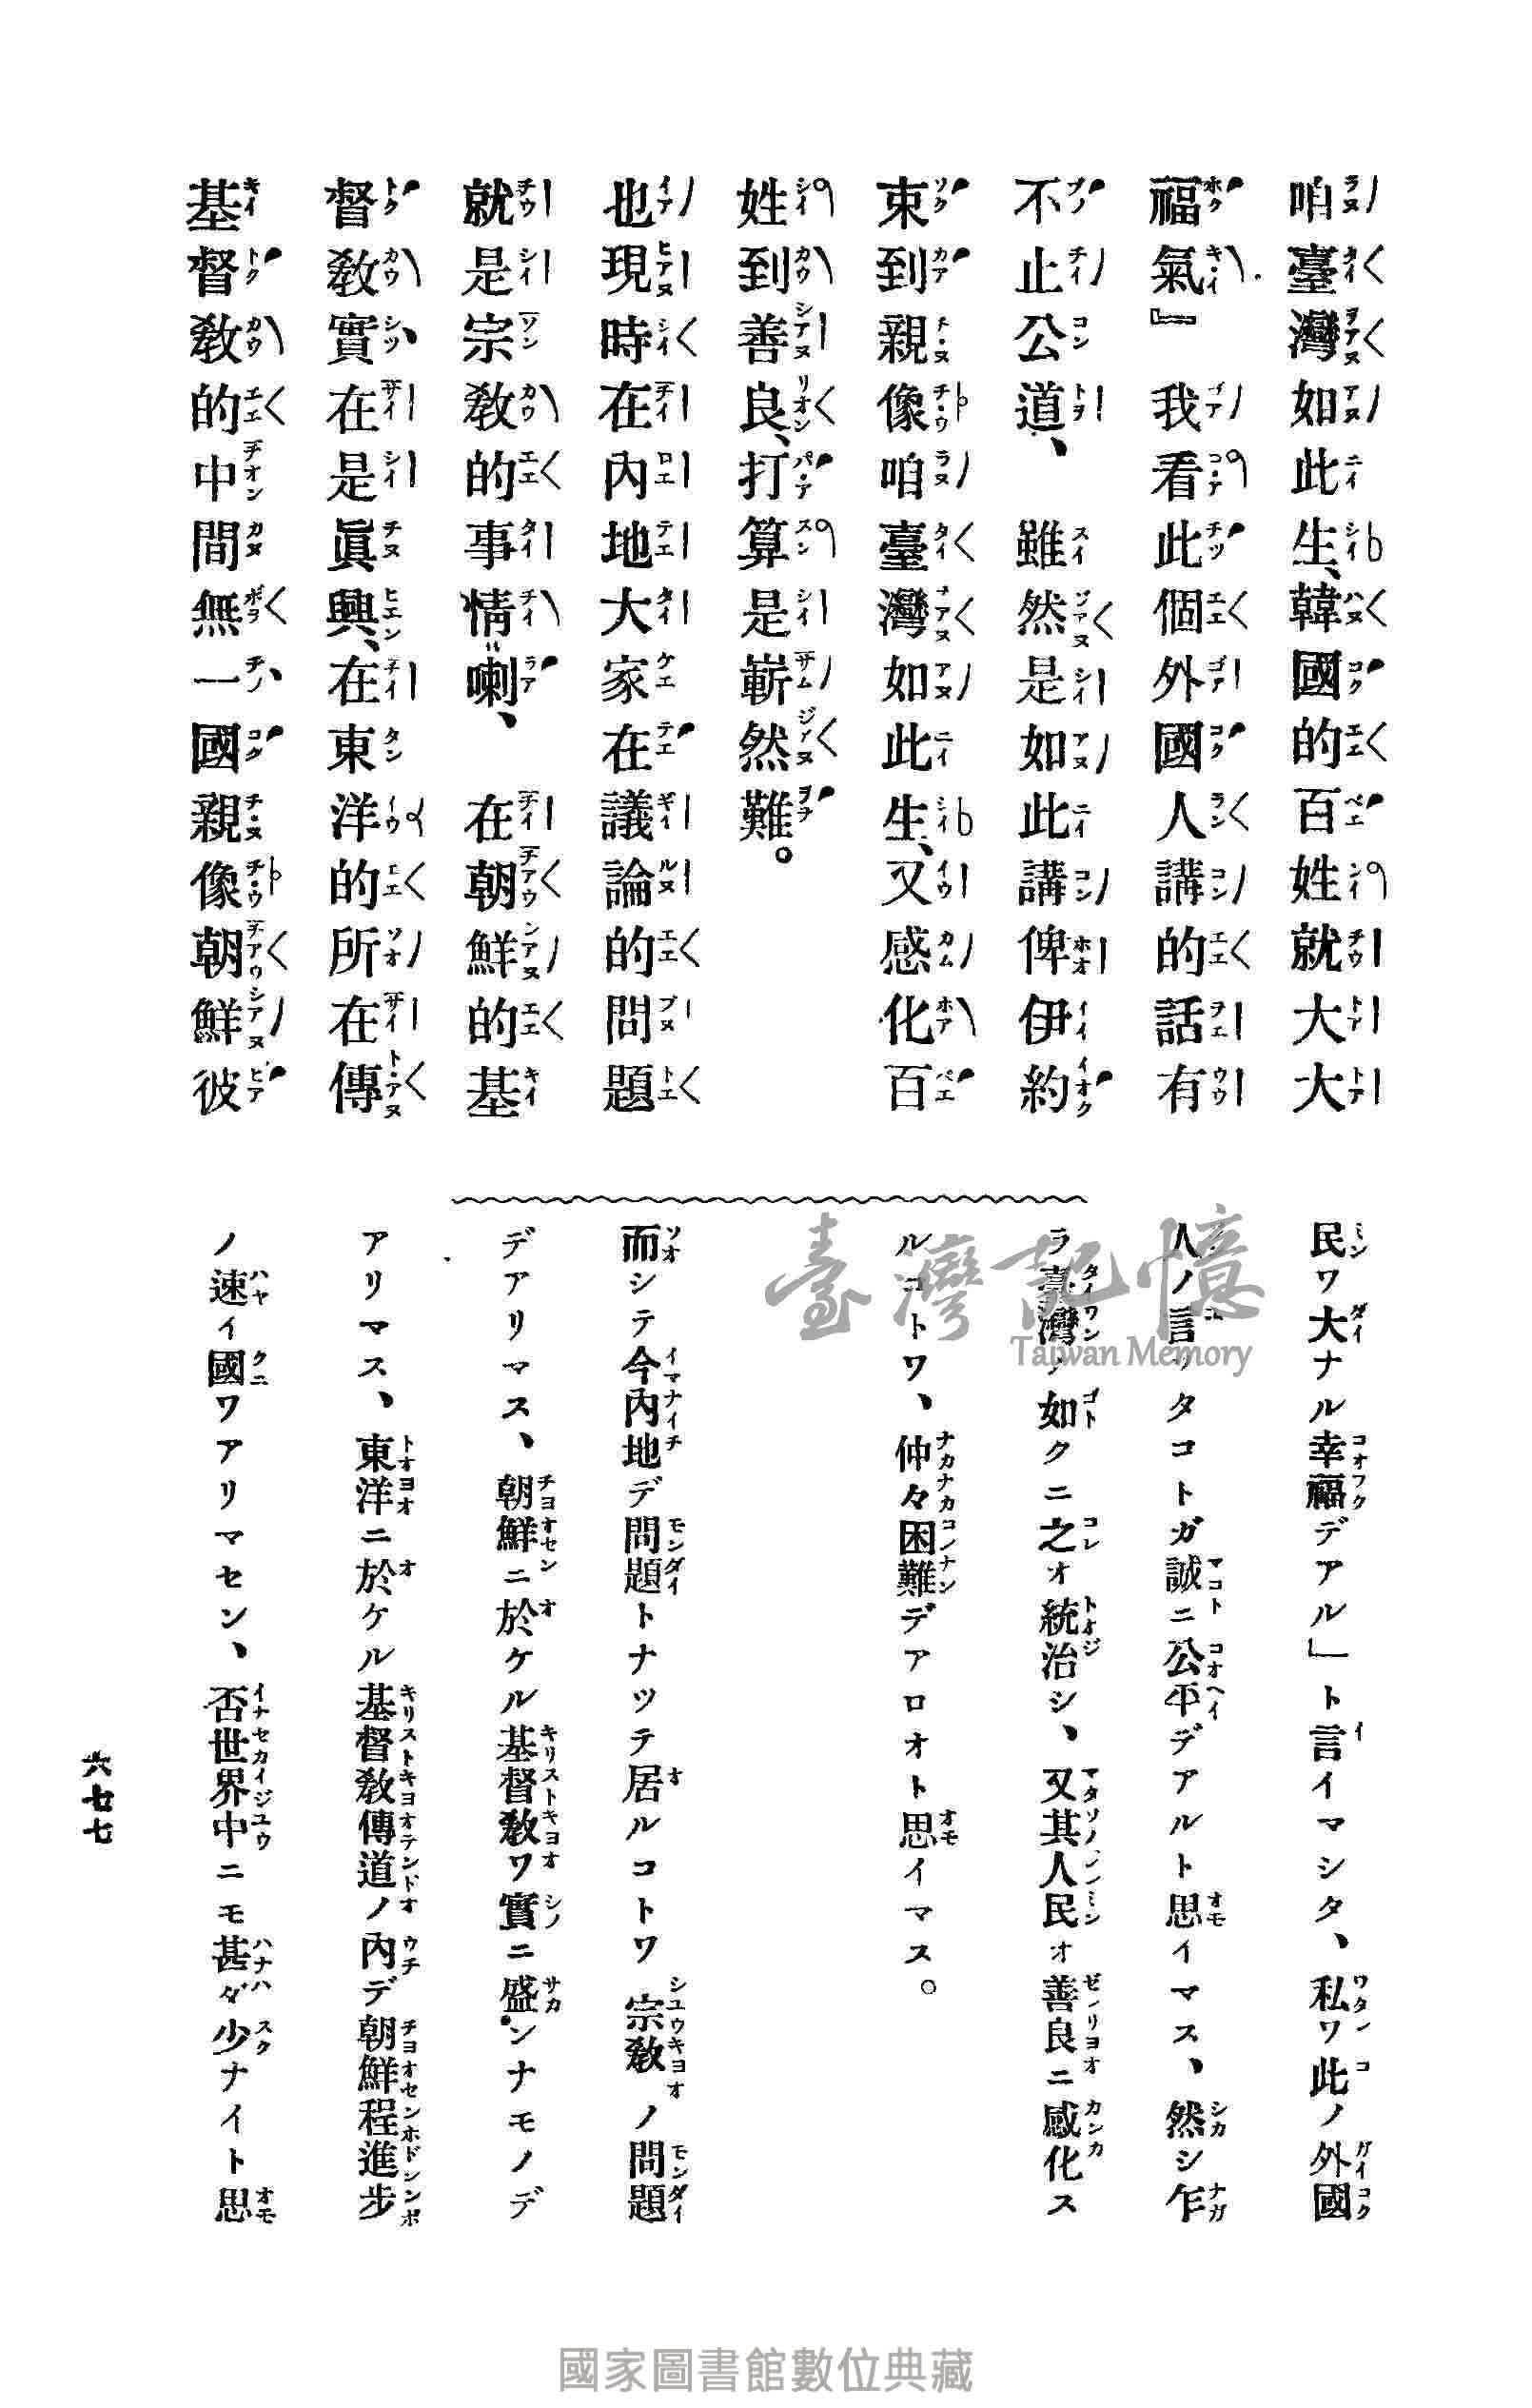 咱臺灣如此生、韓國的百姓就大大
福氣』我看此個外國人講的話有
不止公道、雖然是如此講俾伊約
束到親像咱臺灣如此生、又感化百
姓到善良、打算是嶄然難。
也現時在內地大家在議論的問題
就是宗敎的事情喇、在朝鮮的基
督敎實在是眞興、在東洋的所在傳
基督敎的中間無一國親像朝鮮彼
民ワ大ナル幸福デアル」ト言イマシタ、私ワ此ノ外國
人ノ言ッタコトガ誠ニ公平デアルト思イマス、然シ乍
ラ臺灣ノ如クニ之オ統治シ、又其人民オ善良ニ感化ス
ルコトワ、仲々困難デアロオト思イマス。
而シテ今內地デ問題トナツテ居ルコトワ宗敎ノ問題
デアリマス、朝鮮ニ於ケル基督敎ワ實ニ盛ンナモノデ
アリマス、東洋ニ於ケル基督敎傳道ノ內デ朝鮮程進步
ノ速イ國ワアリマセン、否世界中ニモ甚ダ少ナイト思
六七七
臺灣記憶
Taiwan Memory
國家圖書館數位典藏